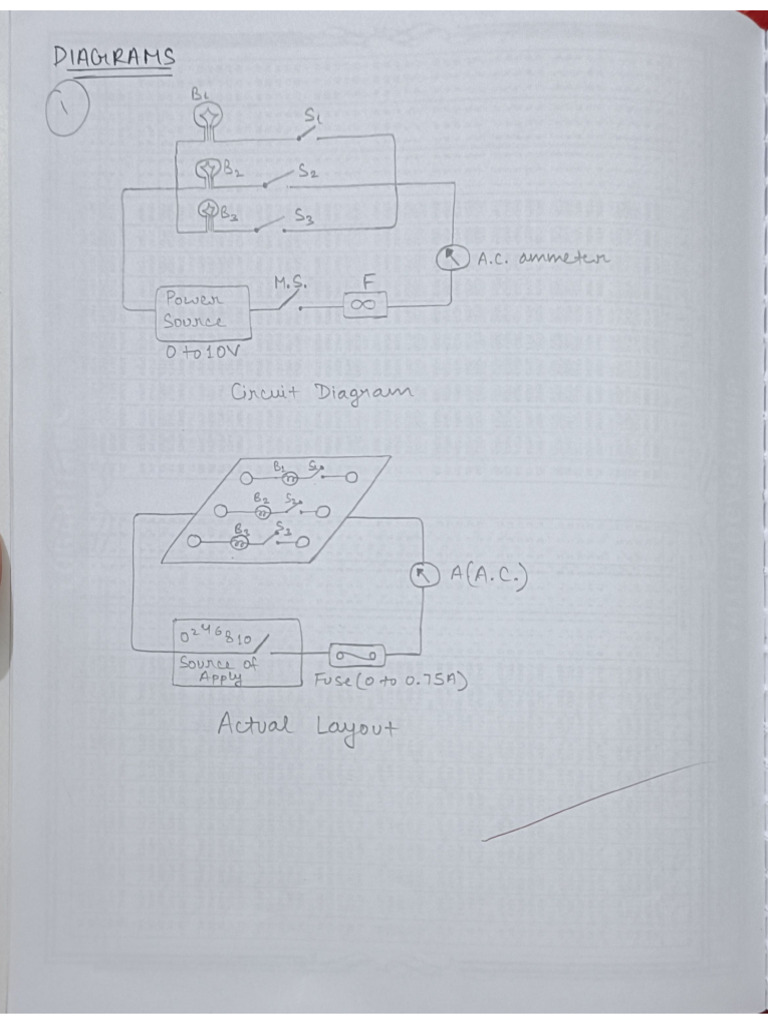 DIAGRAMS
1
B1
S1
B2
S2
B3
S3
A.C. ammeter
M.S.
F
Power
Source
0 to 10V
Circuit Diagram
B1 S1
B2 S2
B3 S3
A(A.C.)
0 2 4 6 8 10
Source of
Apply
Fuse (0 to 0.75A)
Actual Layout